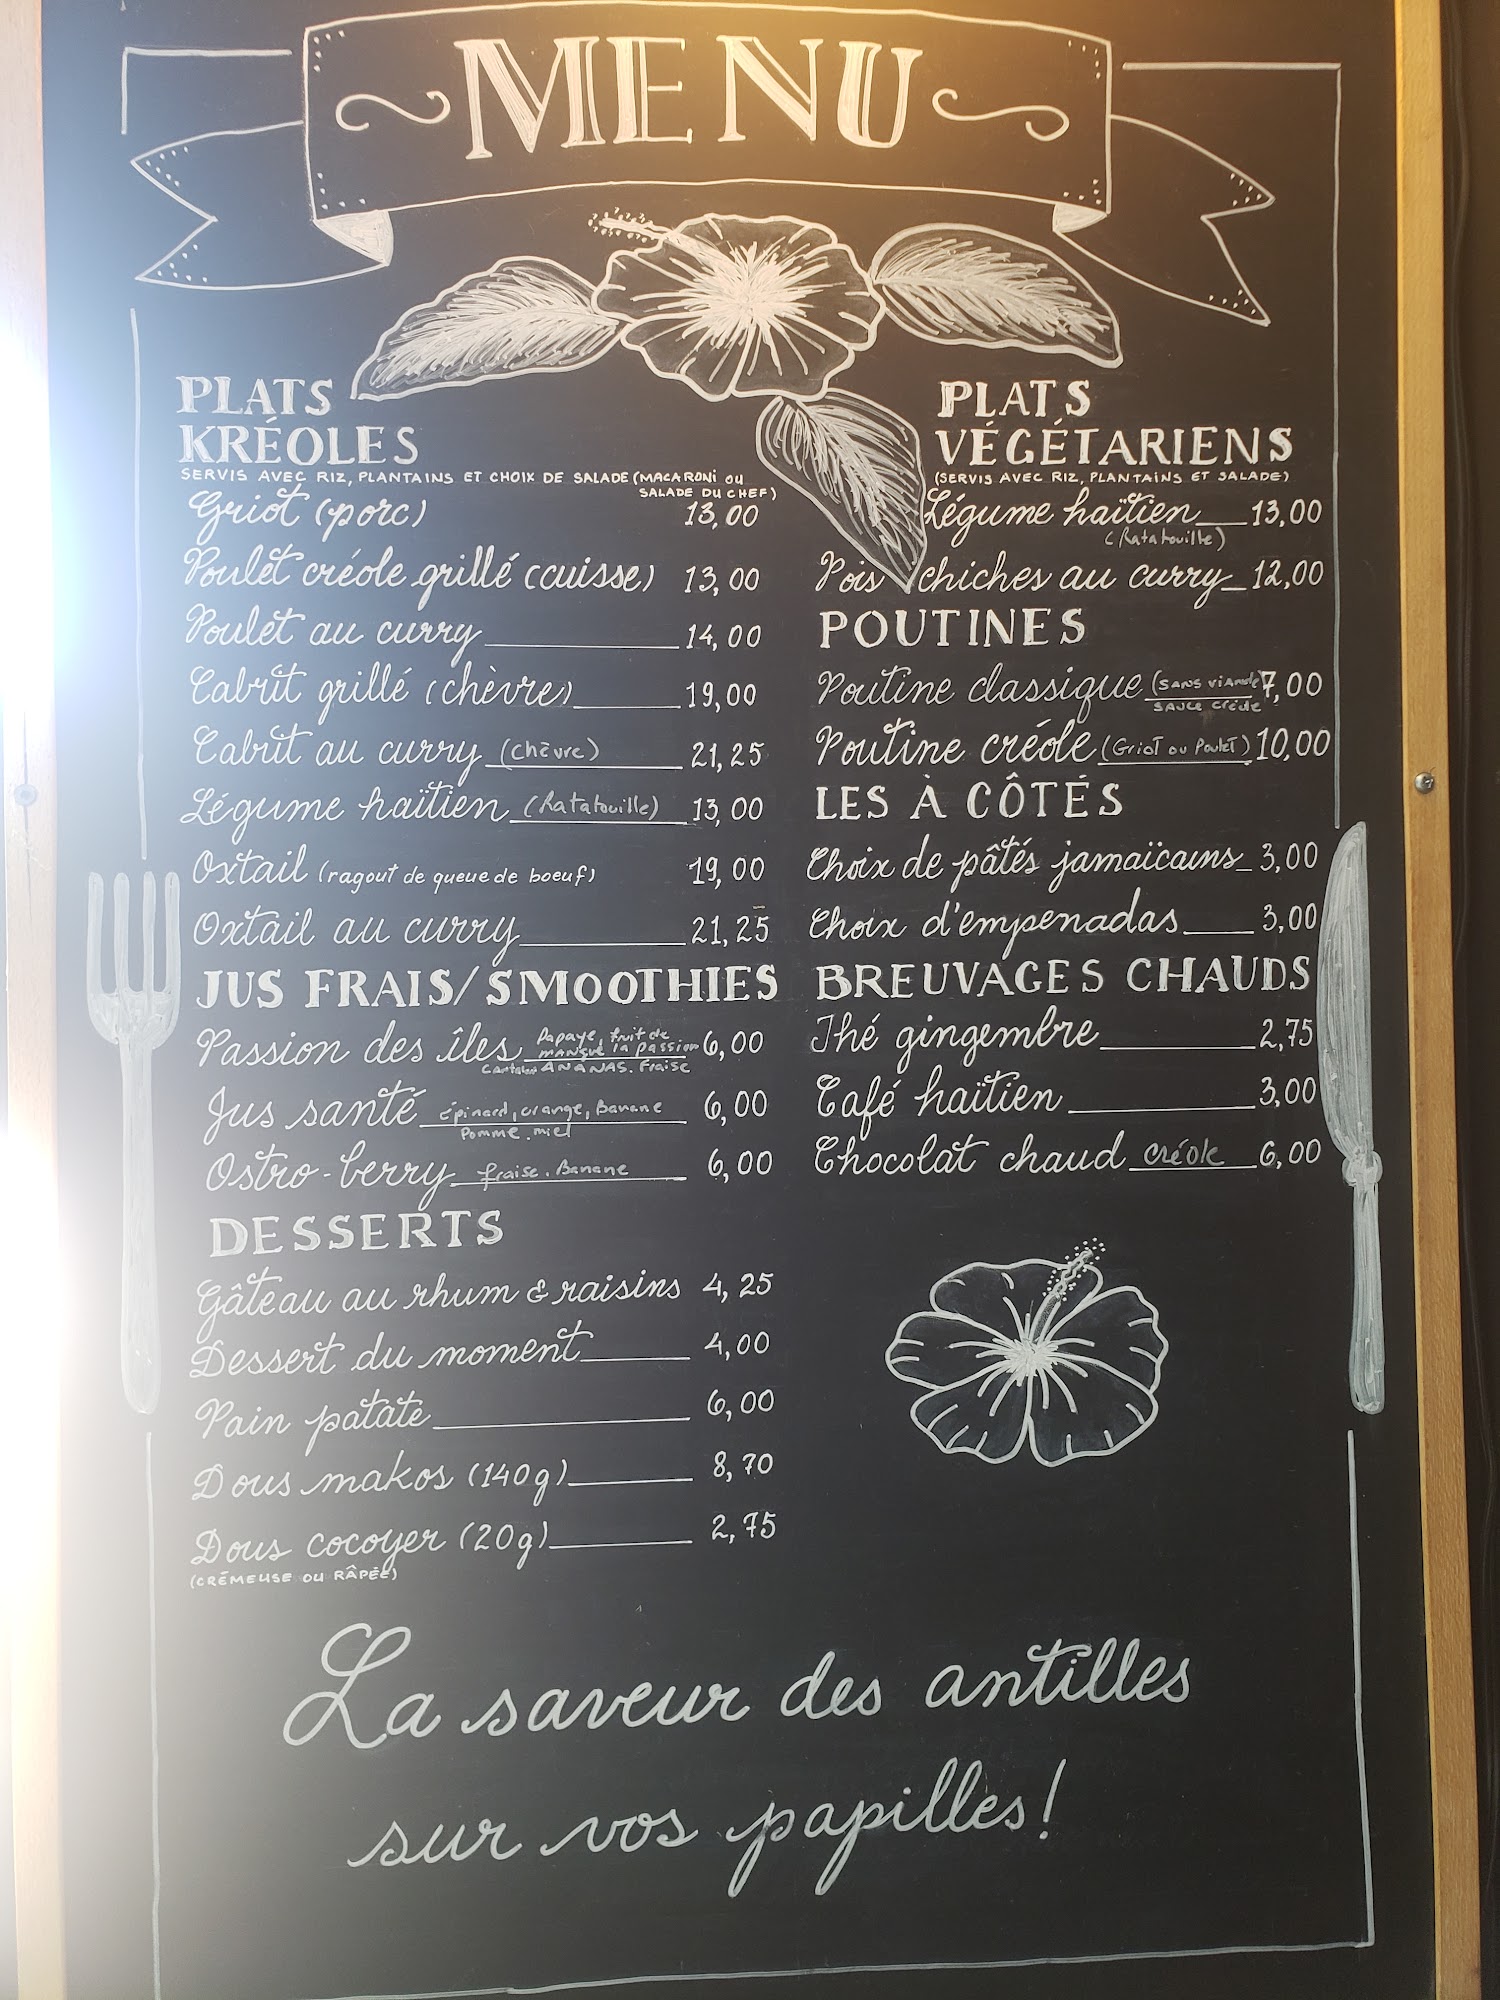 MENU
PLATS
KRÉOLES
SERVIS AVEC RIZ, PLANTAINS ET CHOIX DE SALADE (MACARONi OU
SALADE DU CHEF)
Griot (porc) 13,00
Poulet créole grillé (cuisse) 13,00
Poulet au curry 14,00
Cabrit grillé (chèvre) 19,00
Cabrit au curry (chèvre) 21,25
Légume haïtien (Ratatouille) 13,00
Oxtail (ragout de queue de boeuf) 19,00
Oxtail au curry 21,25
JUS FRAIS/SMOOTHIES
Passion des îles Papaye, fruit de 6,00
MANGUE la passion
ANANAS. Fraise
Jus santé épinard, orange, Banane 6,00
Pomme, miel
Ostro-berry fraise. Banane 6,00
DESSERTS
Gâteau au rhum & raisins 4,25
Dessert du moment 4,00
Pain patate 6,00
Dous makos (140g) 8,70
Dous cocoyer (20g) 2,75
(CRÉMEUSE OU RÂPÉE)
PLATS
VÉGÉTARIENS
(SERVIS AVEC RIZ, PLANTAINS ET SALADE)
Légume haïtien 13,00
(Ratatouille)
Pois chiches au curry 12,00
POUTINES
Poutine classique (SANS viande 7,00
SAUCE créole
Poutine créole (Griot ou Poulet) 10,00
LES À CÔTÉS
Choix de pâtés jamaïcains 3,00
Choix d'empenadas 3,00
BREUVAGES CHAUDS
Thé gingembre 2,75
Café haïtien 3,00
Chocolat chaud créole 6,00
La saveur des antilles
sur vos papilles!